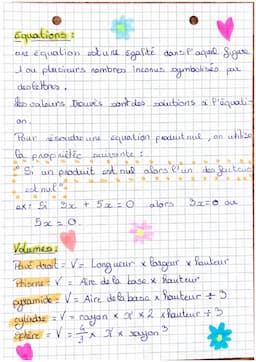 Equations :
une équation est une égalité dans laquelle figure
1 ou plusieurs nombres inconus symbolisés par
des lettres.
Les valeurs trouvés sont des solutions à l'équati-
on.
Pour résoudre une équation produit nul, on utilise
la propriétée suivante :
"Si un produit est nul alors l'un des facteurs
est nul"
ex: Si 3x + 5x = 0 alors 3x = 0 ou
5x = 0.
Volumes :
Pavé droit = V = Longueur x largeur x hauteur
Prisme = V = Aire de la base x hauteur
pyramide = V = Aire de la base x hauteur ÷ 3
cylindre = V = rayon x π x 2 x hauteur ÷ 3
sphère = V = 4/3 x π x rayon³